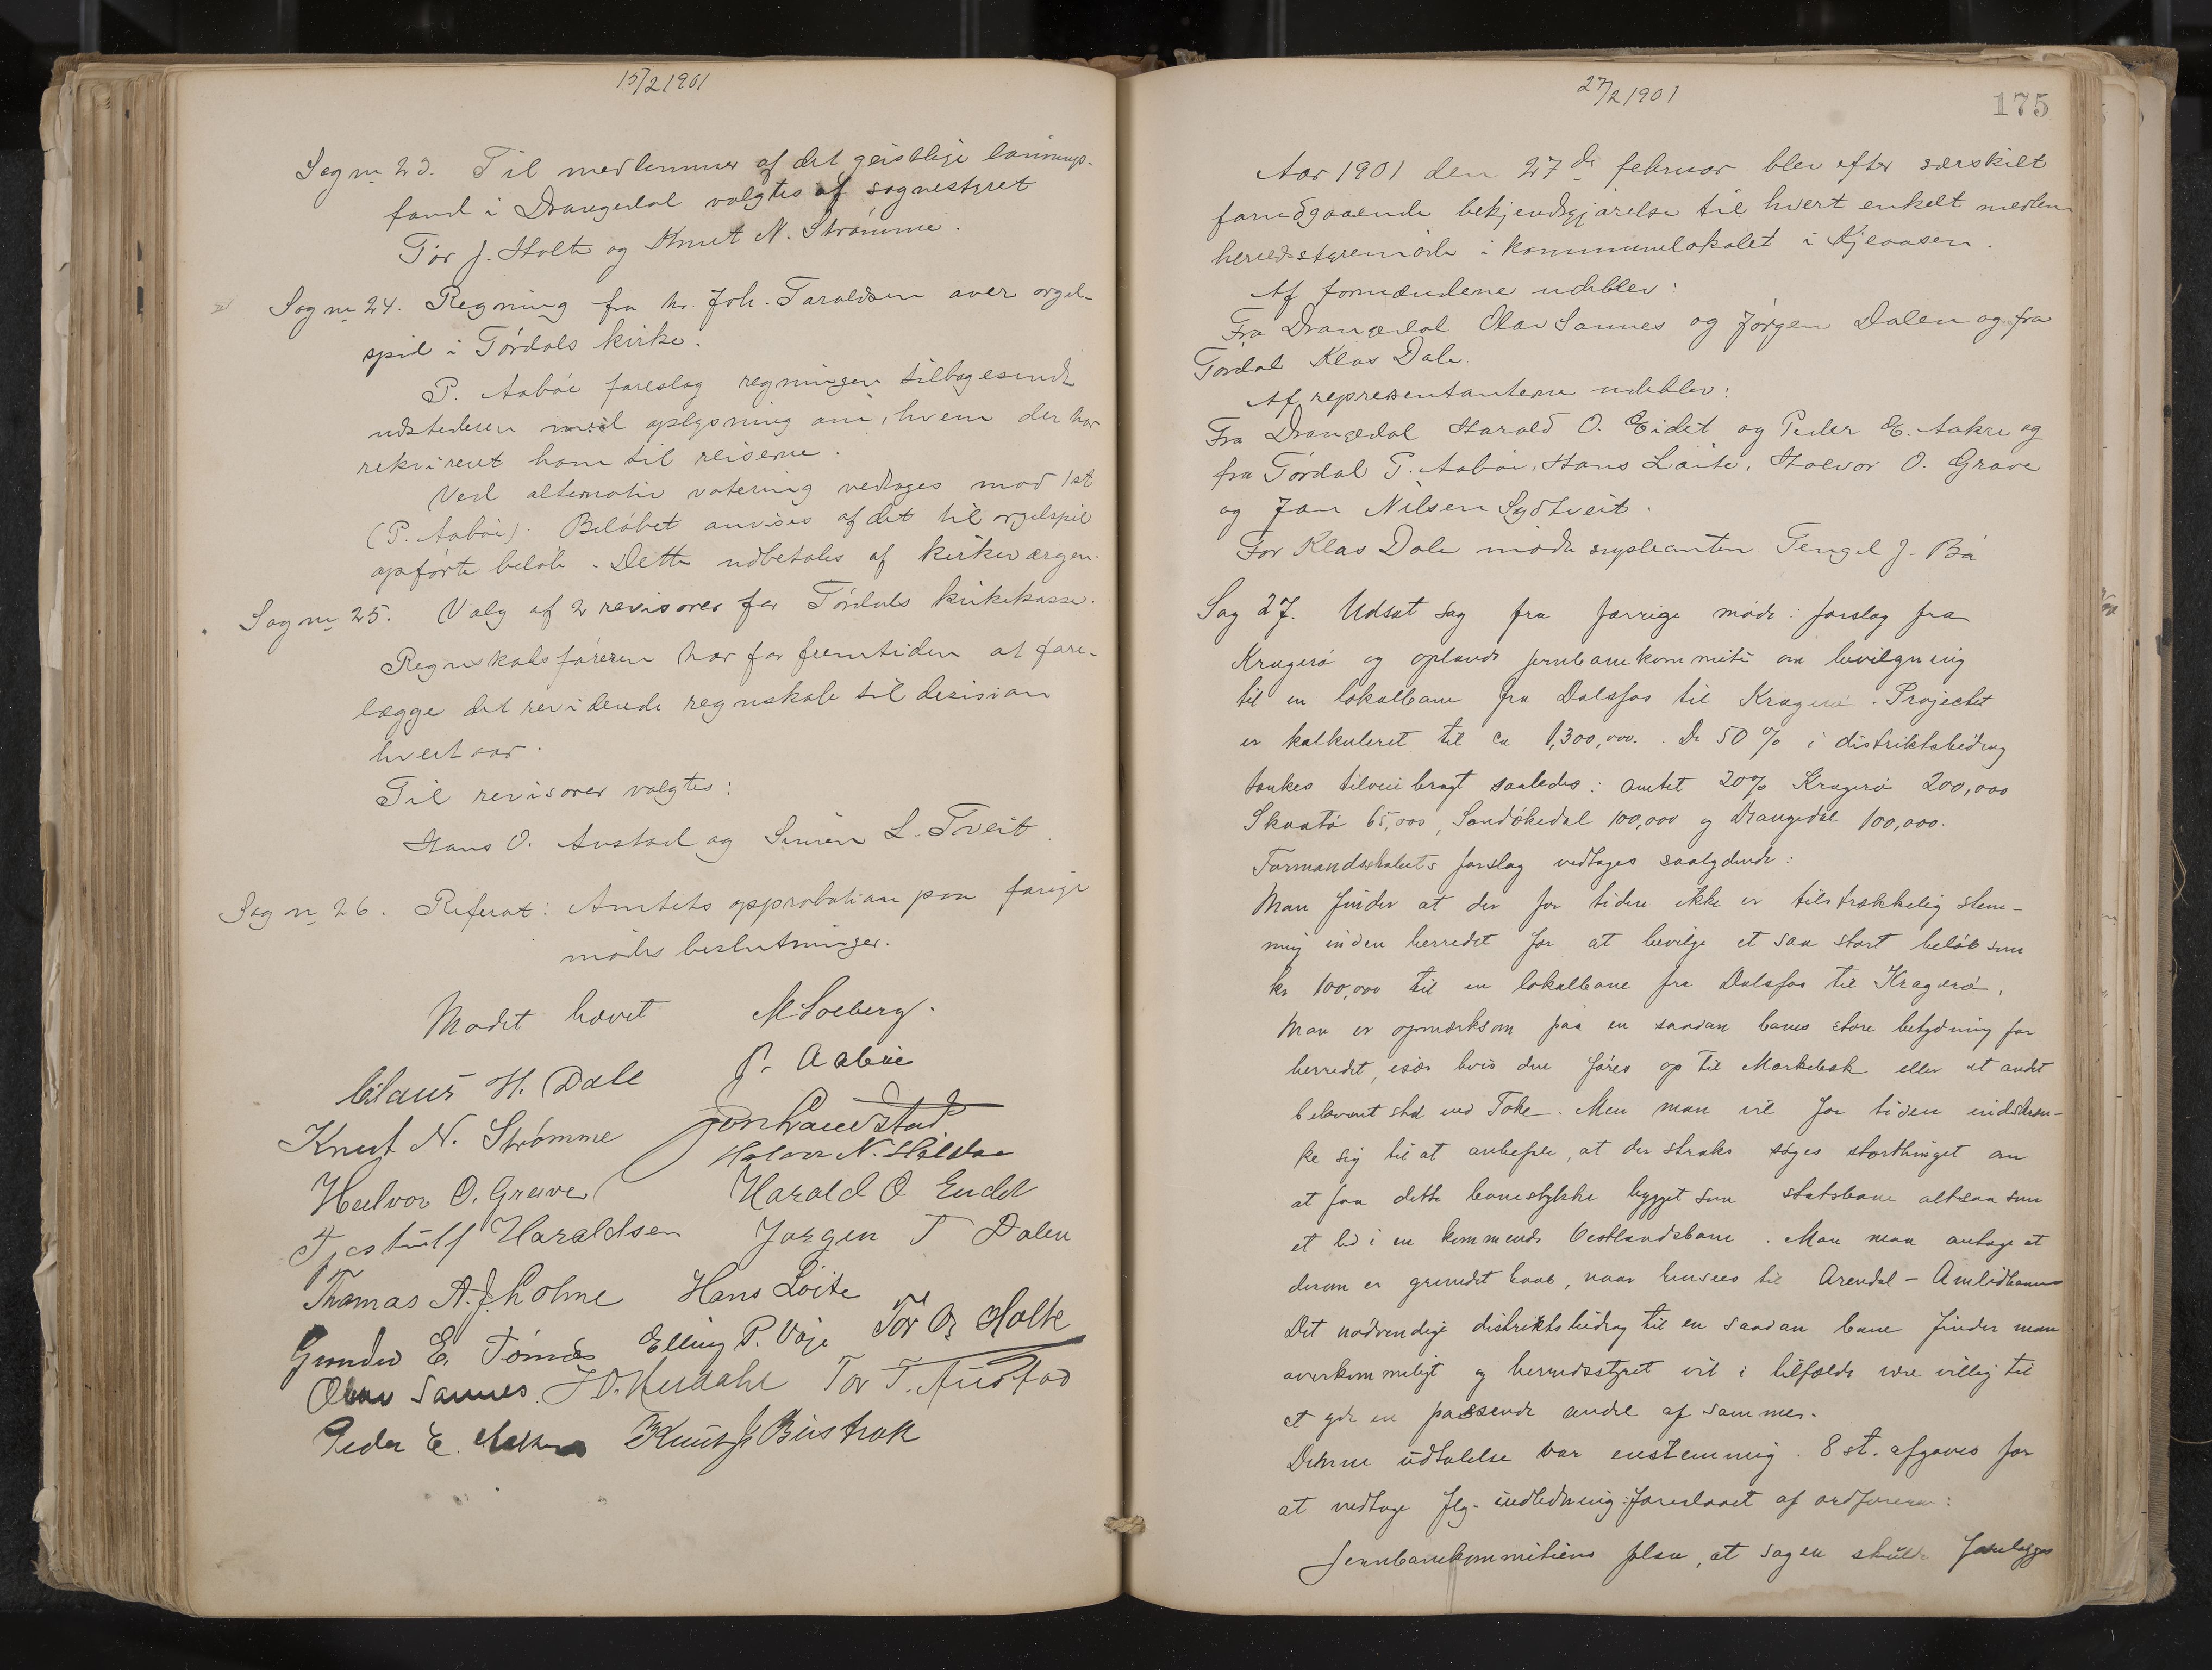 15/2 1901
Sag nr 23. Til medlemmer af det geistlige lønnings-
fond i Drangedal valgtes af sognestyret
Tor J. Holte og Knut N. Strømme.
Sag nr 24. Regning fra hr. Joh. Taraldsen over orgel-
spil i Tørdals kirke.
P. Aabøe foreslog regningen tilbagesendt
udstederen med oplysning om, hvem der har
rekvireret ham til reiserne.
Ved alternativ votering vedtoges mod 1 st
(P. Aabøe). Beløbet anvises af det til orgelspil
opførte beløb. Dette udbetales af kirkeværgen.
Sag nr 25. Valg af 2 revisorer for Tørdals kirkekasse.
Regnskabsføreren har for fremtiden at fore-
lægge det reviderede regnskab til decision
hvert aar.
Til revisorer valgtes:
Hans O. Austad og Simen L. Tveit.
Sag nr 26. Referat: Amtets approbation paa forige
mødes beslutninger.
Mødet hævet M Soeberg.
Claus H. Dale P. Aabøe
Knut N. Strømme Jon Landstad
Halvor N.
Halvor O. Grave Harald O Eidet
Tjostulf Haraldsen Jørgen T Dalen
Thomas A. J. Holme Hans Löite
Gunder E. Tömas Elling P. Voje Tor Holte
Olav Sannes. Tor T. Austad
Peder E. Knut J. Bustrak
27/2 1901
175
Aar 1901 den 27de februar blev efter særskilt
forudgaaende bekjendtgjørelse til hvert enkelt medlem
herredsstyremøde i kommunelokalet i Kjeaasen.
Af formændene udeblev:
Fra Drangedal Olav Sannes og Jørgen Dalen og fra
Tørdal Klas Dale.
Af repræsentanterne udeblev:
Fra Drangedal Harald O. Eidet og Peder E. Aakre og
fra Tørdal P. Aabøe, Hans Løite, Halvor O. Grave
og Jon Nilsen Sydtveit.
For Klas Dale mødte supleanten Tengel J. Bø
Sag 27. Udsat sag fra forrige møde: forslag fra
Kragerø og oplands jernbanekommite om bevilgning
til en lokalbane fra Dalsfos til Kragerø. Projectet
er kalkuleret til ca 1,300,000. De 50 % i distriktsbidrag
tænkes tilveiebragt saaledes: amtet 20 % Kragerø 200,000
Skaatø 65,000, Sandøkedal 100,000 og Drangedal 100,000.
Formandsskabets forslag vedtages saalydende:
Man finder at der for tiden ikke er tilstrækkelig stem-
ning inden herredet for at bevilge et saa stort beløb som
kr 100,000 til en lokalbane fra Dalsfos til Kragerø.
Man er opmærksom paa en saadan banes store betydning for
herredet, især hvis den føres op til Merkebæk eller et andet
belevent sted ved Toke. Men man vil for tiden indskræn-
ke sig til at anbefale, at der straks søges storthinget om
at faa dette banestykke bygget som statsbane altsaa som
et led i en kommende Vestlandsbane. Man maa antage at
derom er grundet haab, naar hensees til Arendal - Amlidbanen
Det nødvendige distriktsbidrag til en saadan bane finder man
overkommeligt og herredsstyret vil i tilfælde være villig til
at yde en passende andel af sammes.
Denne udtalelse var enstemmig. 8 st. afgaves for
at vedtage flg. indledning foreslaaet af ordføreren:
Jernbanekommiteens plan, at sagen skulde forelægges